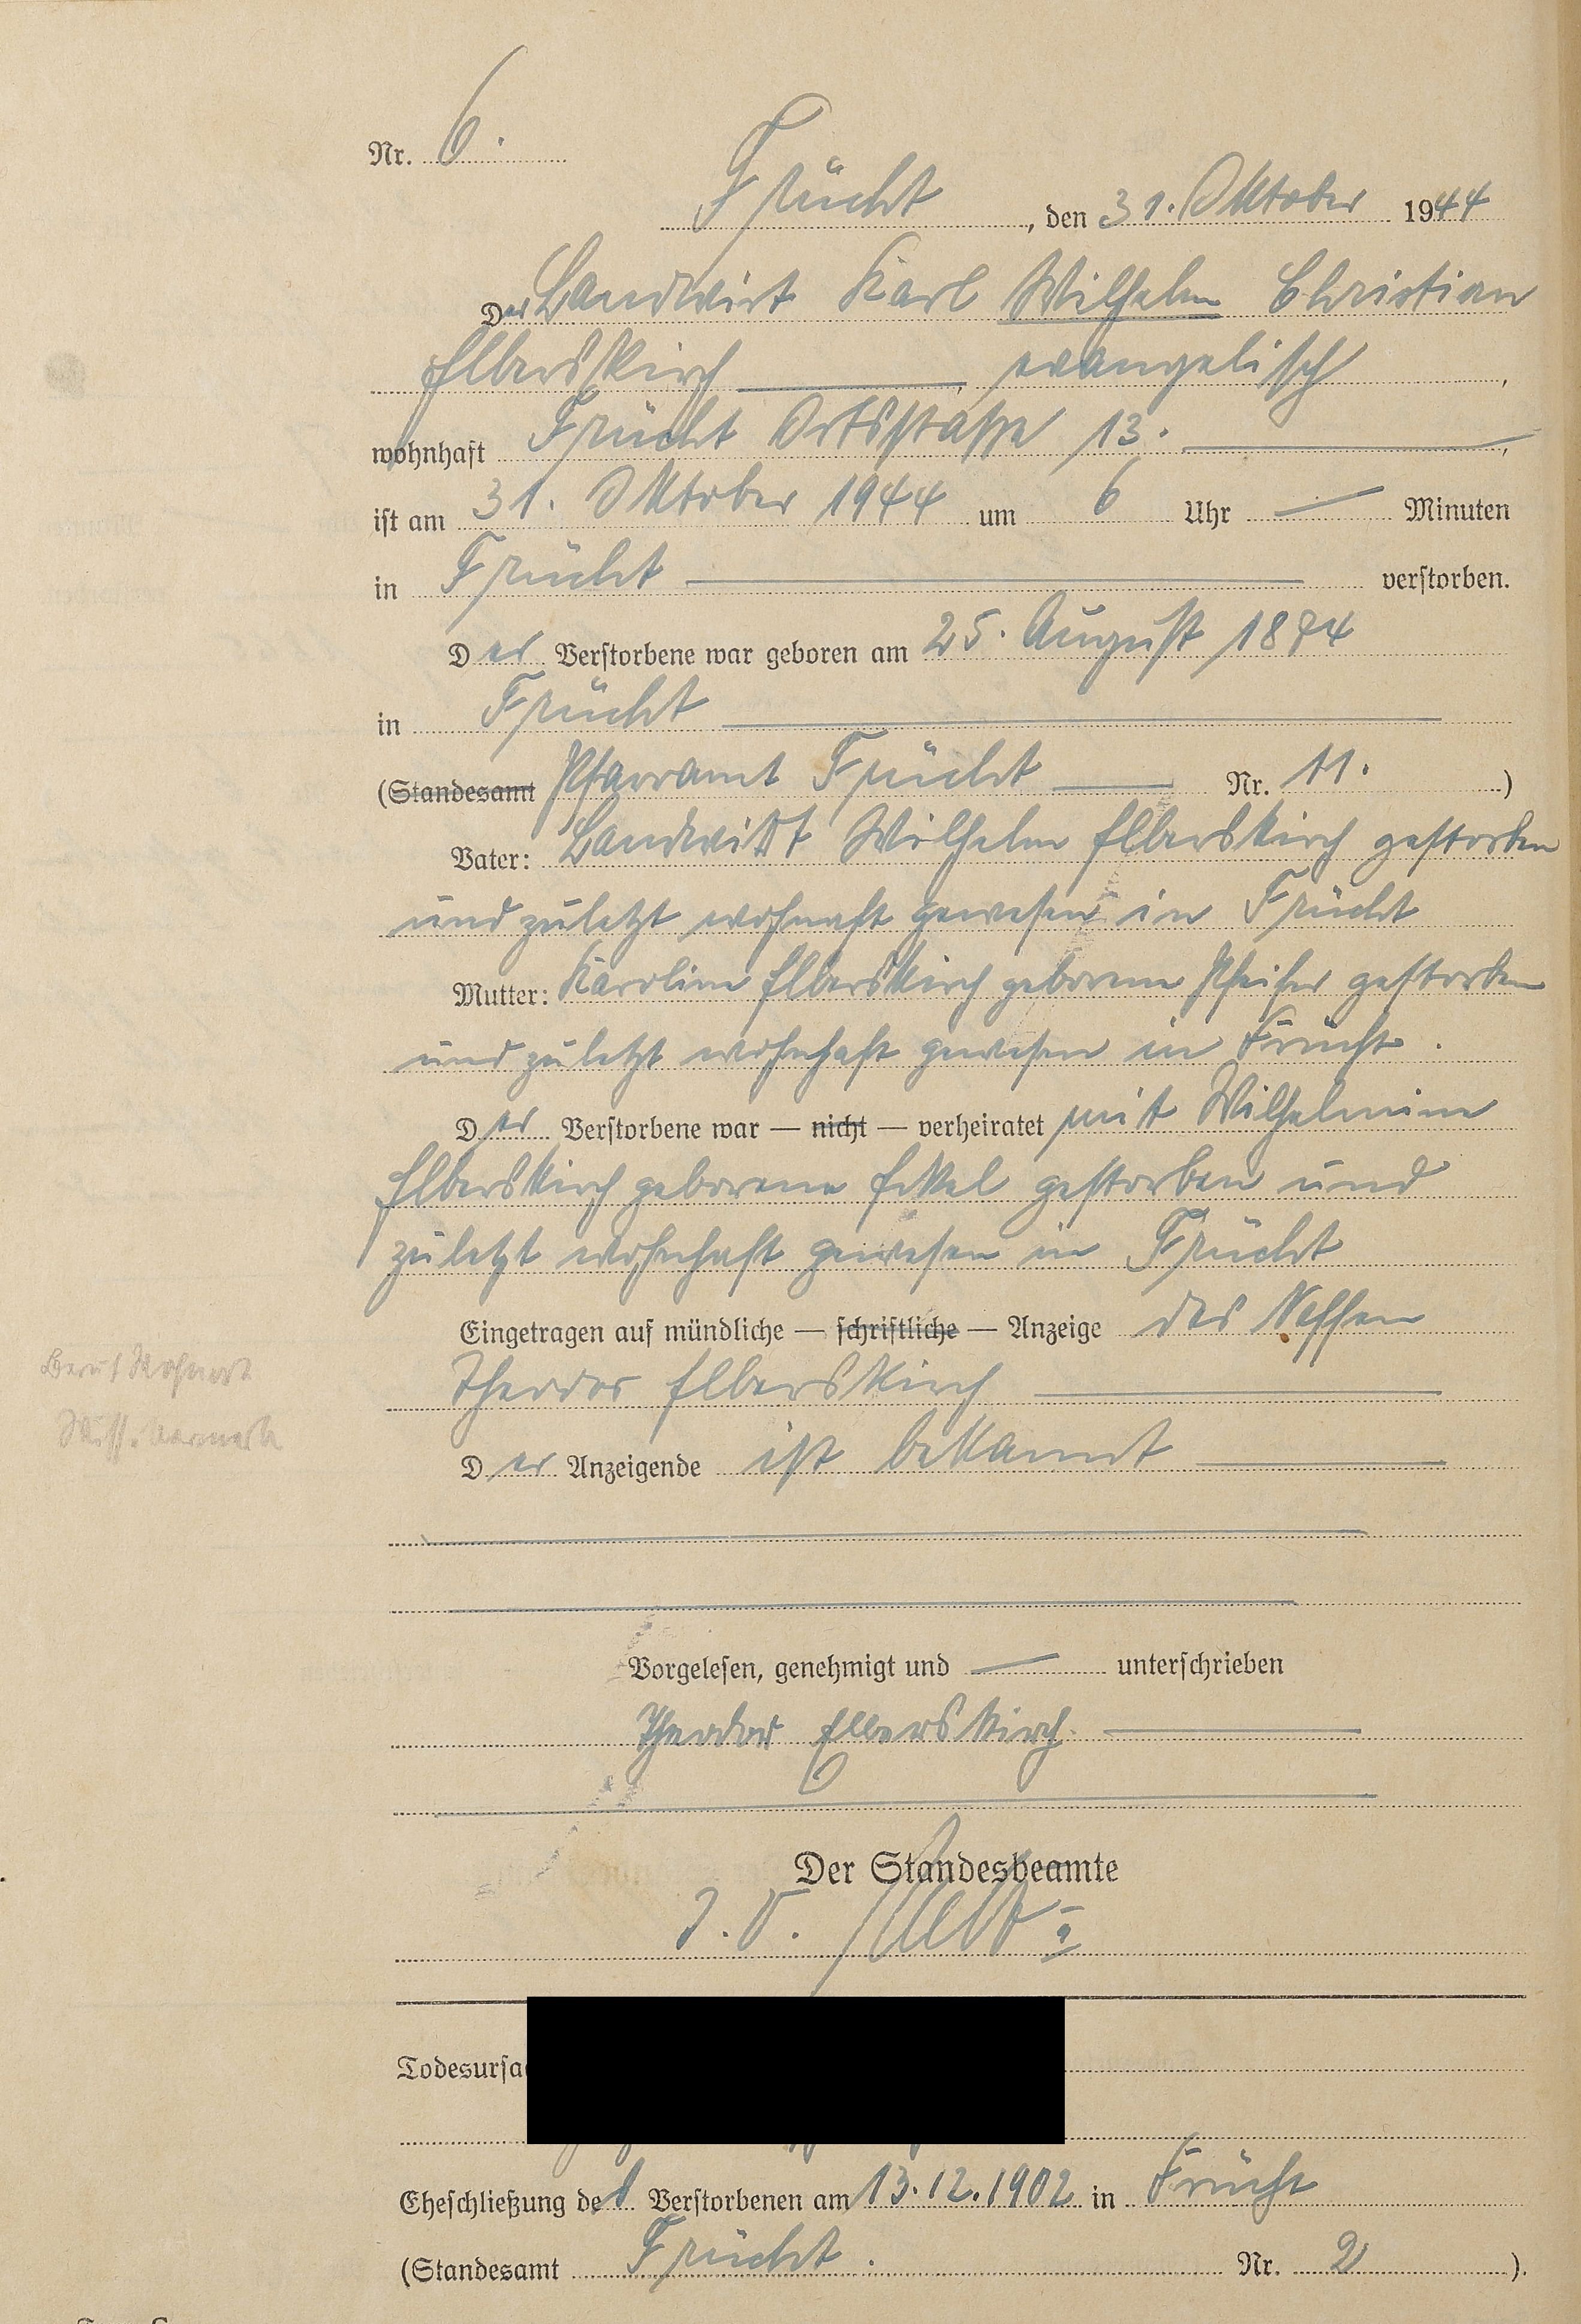 Nr. 6.
Frücht, den 31. Oktober 1944
Der Landwirt Karl Wilhelm Christian
Elberskirch, evangelisch,
wohnhaft Frücht Ortsstraße 13.,
ist am 31. Oktober 1944 um 6 Uhr — Minuten
in Frücht verstorben.
Der Verstorbene war geboren am 25. August 1874
in Frücht
(Standesamt Pfarramt Frücht Nr. 11.)
Vater: Landwirt Wilhelm Elberskirch gestorben
und zuletzt wohnhaft gewesen in Frücht
Mutter: Karoline Elberskirch geborene Pfeifer gestorben
und zuletzt wohnhaft gewesen in Frücht.
Der Verstorbene war — nicht — verheiratet mit Wilhelmine
Elberskirch geborene Eckel gestorben und
zuletzt wohnhaft gewesen in Frücht
Eingetragen auf mündliche — schriftliche — Anzeige des Neffen
Theodor Elberskirch
Der Anzeigende ist bekannt
Vorgelesen, genehmigt und — unterschrieben
Theodor Elberskirch.
Der Standesbeamte
J. V.
Todesursa
Eheschließung des Verstorbenen am 13.12.1902 in Frücht
(Standesamt Frücht. Nr. 2).